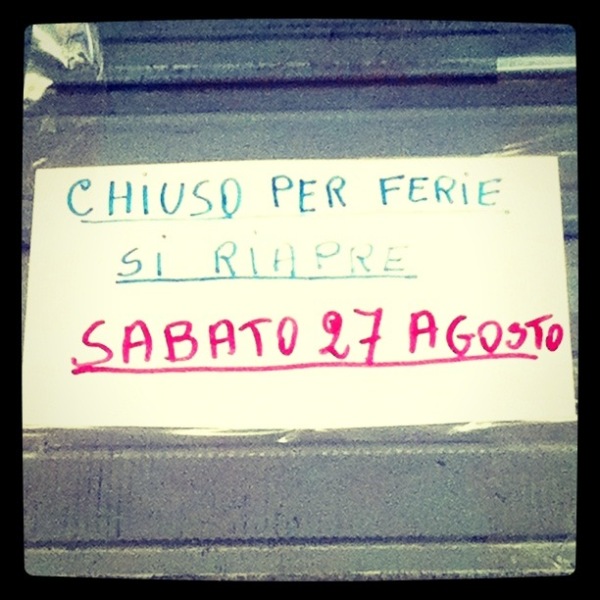 CHIUSO PER FERIE
SI RIAPRE
SABATO 27 AGOSTO